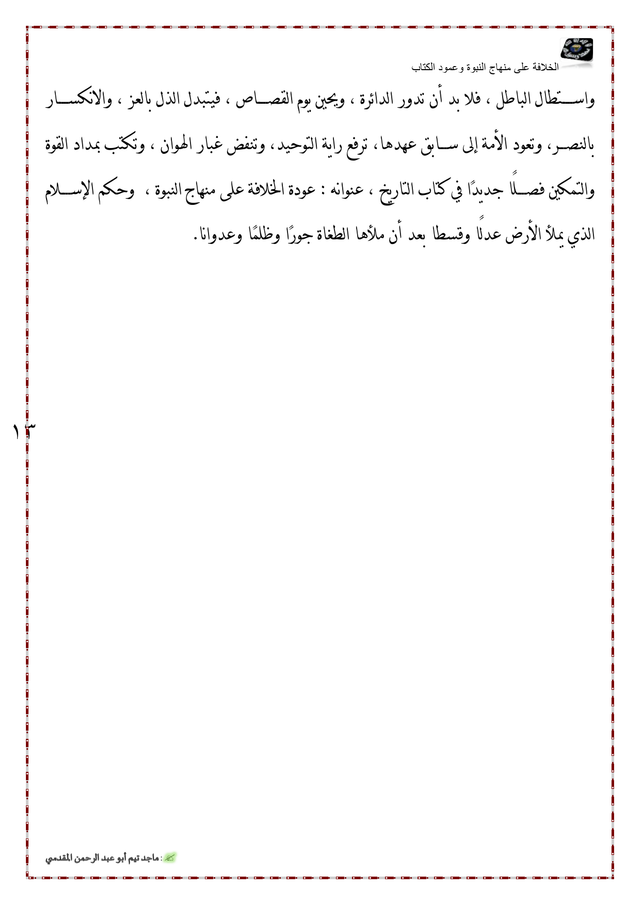 الخلافة على منهاج النبوة وعمود الكتاب
واستطال الباطل ، فلا بد أن تدور الدائرة ، ويحين يوم القصاص ، فيتبدل الذل بالعز ، والانكسار
بالنصر، وتعود الأمة إلى سابق عهدها، ترفع راية التوحيد، وتنفض غبار الهوان ، وتكتب بمداد القوة
والتمكين فصلًا جديدًا في كتاب التاريخ ، عنوانه : عودة الخلافة على منهاج النبوة ، وحكم الإسلام
الذي يملأ الأرض عدلًا وقسطا بعد أن ملأها الطغاة جورًا وظلمًا وعدوانا.
١٣
: ماجد تيم أبو عبد الرحمن المقدسي